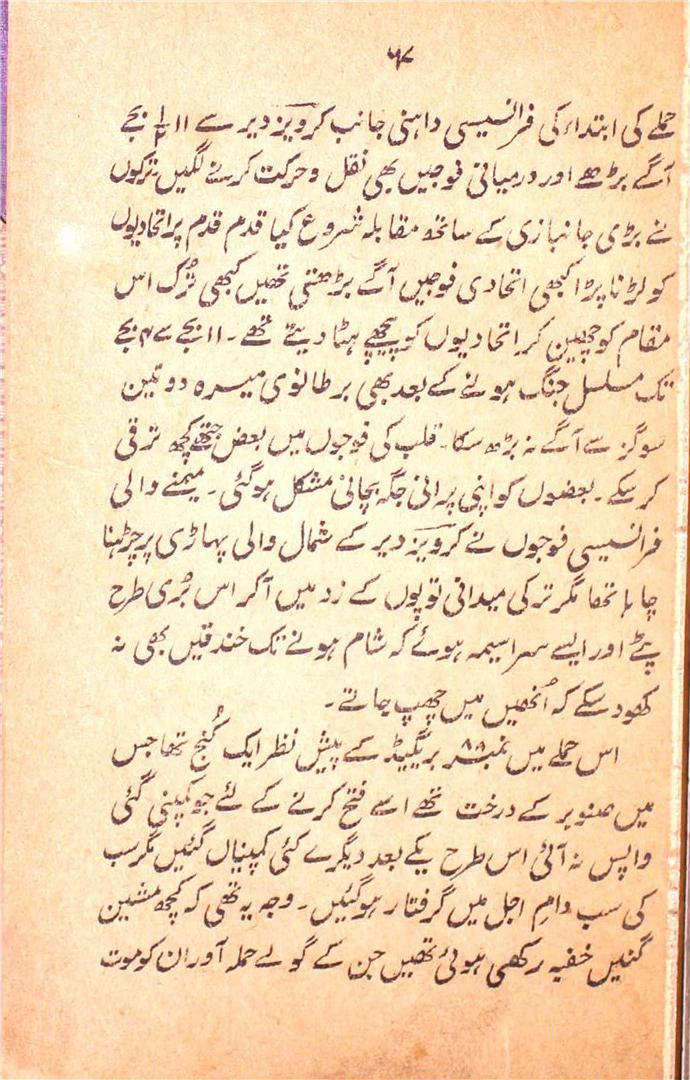 ۶۷
حملے کی ابتداء کی فرانسیسی داہنی جانب کرویز دیر سے ۱۱ ۱/۲ بجے
آگے بڑھے اور درمیانی فوجیں بھی نقل و حرکت کرنے لگیں ترکوں
نے بڑی جانبازی کے ساتھ مقابلہ شروع کیا قدم قدم پر اتحادیوں
کو لڑنا پڑا کبھی اتحادی فوجیں آگے بڑھتی تھیں کبھی تُرک اس
مقام کو چھین کر اتحادیوں کو پیچھے ہٹا دیتے تھے ۔ ۱۱ بجے سے ۴ بجے
تک مسلسل جنگ ہونے کے بعد بھی برطانوی میسرہ دو تین
سو گز سے آگے نہ بڑھ سکا ۔ قلب کی فوجوں میں بعض جتھے کچھ ترقی
کر سکے ۔ بعضوں کو اپنی پرانی جگہ بچانی مشکل ہوگئی ۔ میمنے والی
فرانسیسی فوجوں نے کرویز دیر کے شمال والی پہاڑی پر چڑہنا
چاہا تھا مگر ترکی میدانی توپوں کے زد میں آکر اس بُری طرح
پٹے اور ایسے سراسیمہ ہوئے کہ شام ہونے تک خندقیں بھی نہ
کھود سکے کہ اُنھیں میں چھپ جاتے ۔
اس حملے میں نمبر ۸۸ بریگیڈ کے پیش نظر ایک کُنج تھا جس
میں صنوبر کے درخت تھے اسے فتح کرنے کے لئے جو کمپنی گئی
واپس نہ آئی اس طرح یکے بعد دیگرے کئی کمپنیاں گئیں مگر سب
کی سب دامِ اجل میں گرفتار ہوگئیں ۔ وجہ یہ تھی کہ کچھ مشین
گنیں خفیہ رکھی ہوئی تھیں جن کے گولے حملہ آوران کو موت